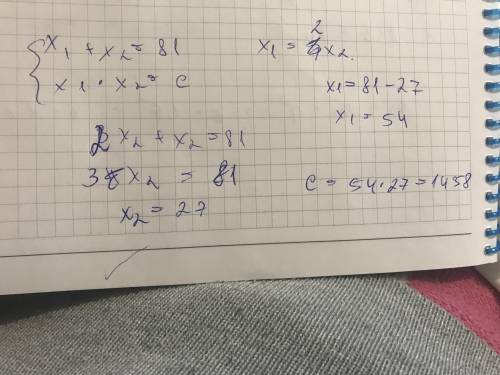 x₁ + x₂ = 81
x₁ · x₂ = c
x₁ = 2x₂.
x₁ = 81 - 27
x₁ = 54
2x₂ + x₂ = 81
3x₂ = 81
x₂ = 27
c = 54 · 27 = 1458